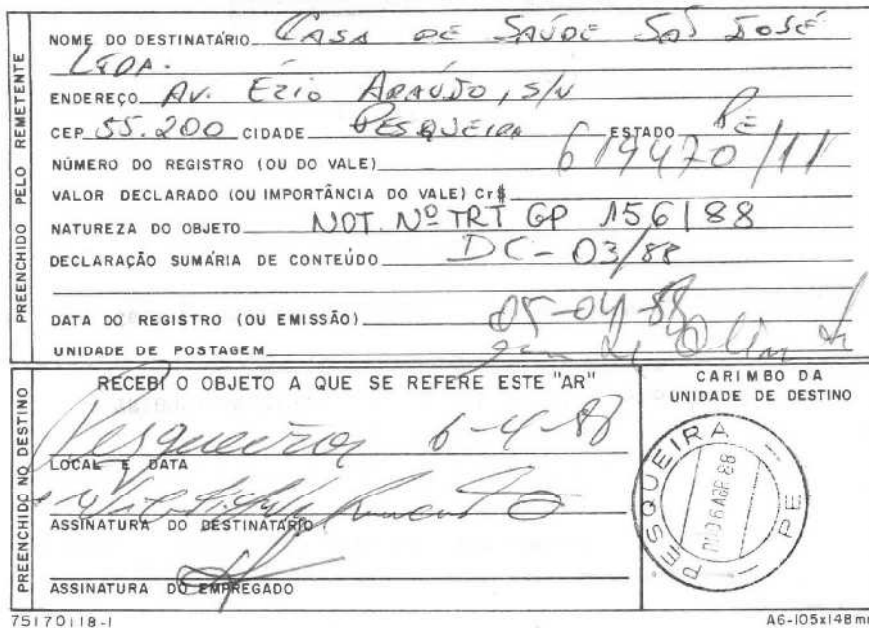 PREENCHIDO PELO REMETENTE
NOME DO DESTINATÁRIO CASA DE SAÚDE SÃO JOSÉ
LTDA.
ENDEREÇO AV. EZIO ARAÚJO, S/N
CEP 55.200 CIDADE PESQUEIRA ESTADO PE
NÚMERO DO REGISTRO (OU DO VALE) 619470/11
VALOR DECLARADO (OU IMPORTÂNCIA DO VALE) Cr$
NATUREZA DO OBJETO NOT. Nº TRT GP 156/88
DECLARAÇÃO SUMÁRIA DE CONTEÚDO DC - 03/88
DATA DO REGISTRO (OU EMISSÃO) 05-04-88
UNIDADE DE POSTAGEM
PREENCHIDO NO DESTINO
RECEBI O OBJETO A QUE SE REFERE ESTE "AR"
Pesqueira 6-4-88
LOCAL E DATA
ASSINATURA DO DESTINATÁRIO
ASSINATURA DO EMPREGADO
CARIMBO DA
UNIDADE DE DESTINO
PESQUEIRA
06 ABR 88
PE
75170118-1
A6-105x148mm